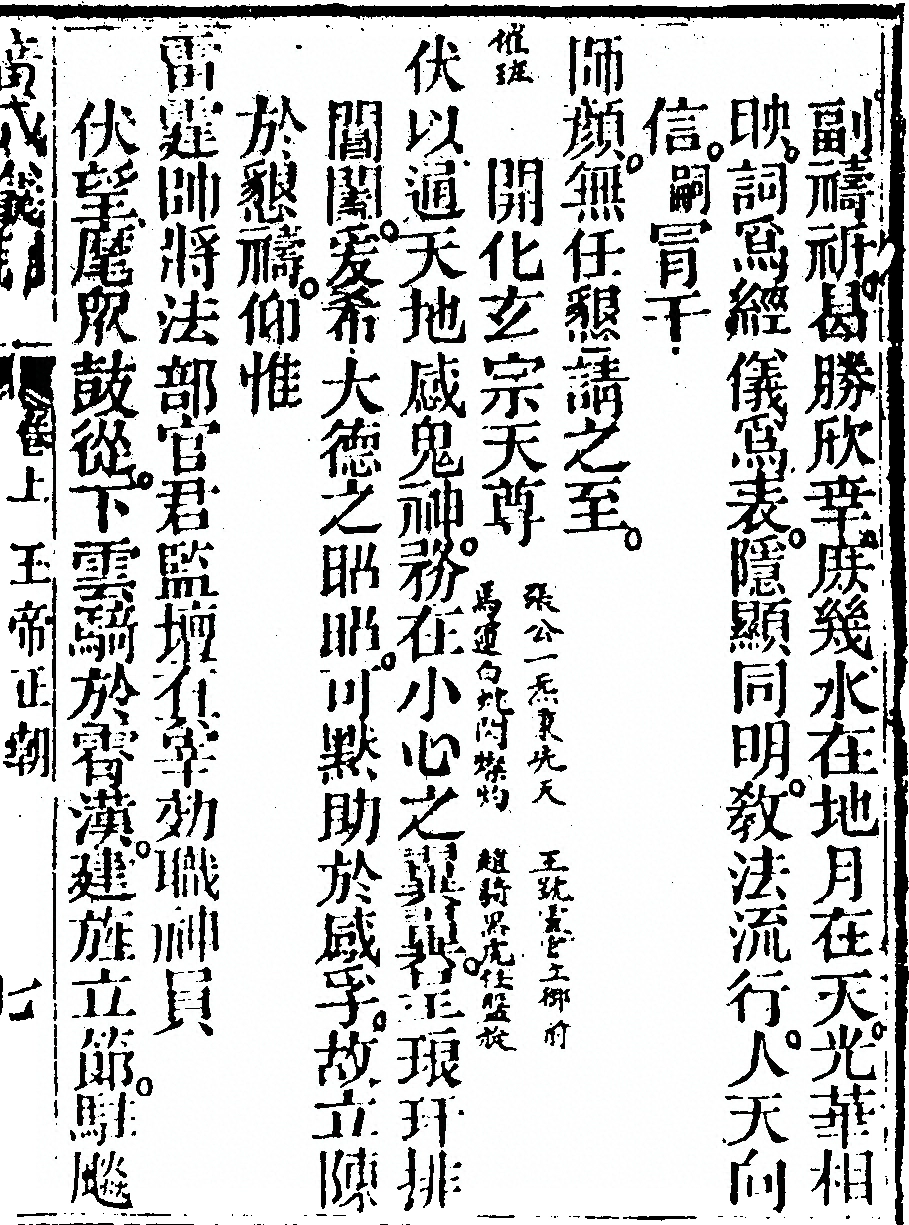 副禱祈曷勝欣幸庶幾水在地月在天光華相
映詞爲經儀爲表隱顯同明教法流行人天向
信嗣冐干
師顔無任懇請之至
催班 開化玄宗天尊 張公一炁東先天 王號靈官上御前
馬運白蛇閃燦灼 趙騎黑虎仗盤旋
伏以通天地感鬼神務在小心之翼翼呈琅玕排
閶闔爰希大德之昭昭可默助於感孚故立陳
於懇禱仰惟
雷霆帥將法部官君監壇在宰効職神員
伏望麾眾鼓從下雲騎於霄漢建旌立節駐飈
廣成儀制 卷上 玉帝正朝 七